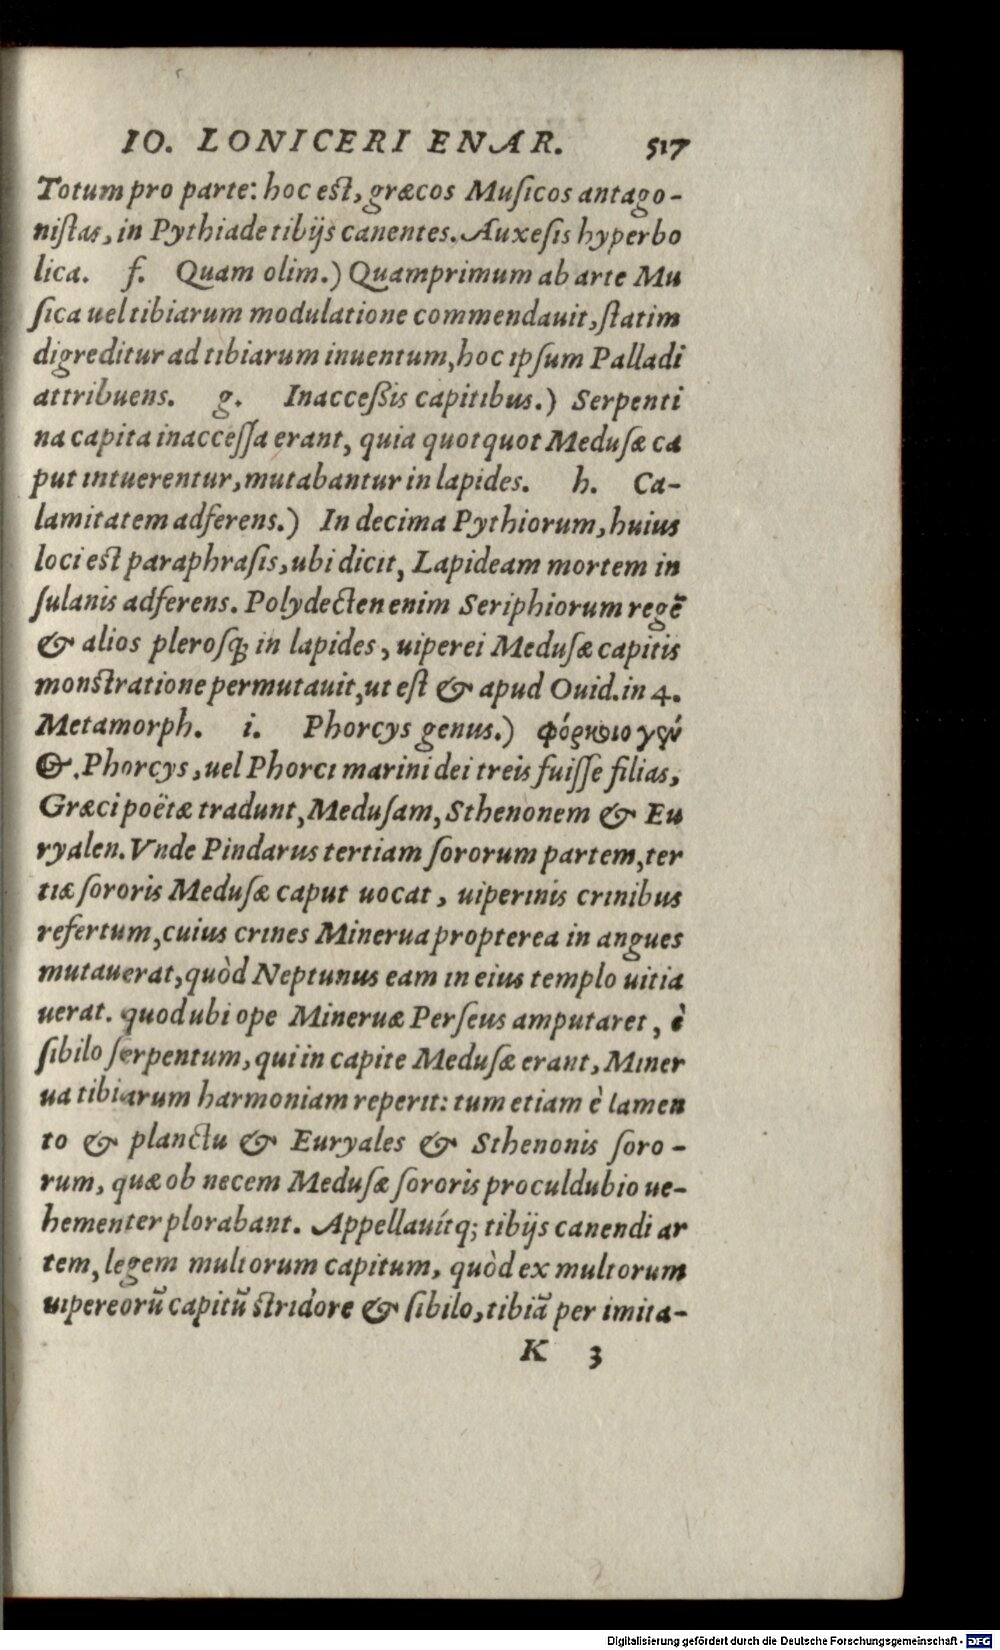 IO. LONICERI ENAR. 517
Totum pro parte: hoc est, græcos Muſicos antago-
niſtas, in Pythiade tibijs canentes. Auxeſis hyperbo
lica. f. Quam olim.) Quamprimum ab arte Mu
ſica uel tibiarum modulatione commendauit, ſtatim
digreditur ad tibiarum inuentum, hoc ipſum Palladi
attribuens. g. Inacceßis capitibus.) Serpenti
na capita inacceſſa erant, quia quotquot Meduſæ ca
put intuerentur, mutabantur in lapides. h. Ca-
lamitatem adferens.) In decima Pythiorum, huius
loci est paraphraſis, ubi dicit, Lapideam mortem in
ſulanis adferens. Polydecten enim Seriphiorum regē
& alios pleroſq; in lapides, uiperei Meduſæ capitis
monstratione permutauit, ut eſt & apud Ouid. in 4.
Metamorph. i. Phorcys genus.) φόρκοιο γέν
&. Phorcys, uel Phorci marini dei treis fuiſſe filias,
Græci poëtæ tradunt, Meduſam, Sthenonem & Eu
ryalen. Vnde Pindarus tertiam ſororum partem, ter
tiæ ſororis Meduſæ caput uocat, uiperinis crinibus
refertum, cuius crines Minerua propterea in angues
mutauerat, quòd Neptunus eam in eius templo uitia
uerat. quod ubi ope Mineruæ Perſeus amputaret, è
ſibilo ſerpentum, qui in capite Meduſæ erant, Miner
ua tibiarum harmoniam reperit: tum etiam è lamen
to & planctu & Euryales & Sthenonis ſoro-
rum, quæ ob necem Meduſæ ſororis proculdubio ue-
hementer plorabant. Appellauítq; tibijs canendi ar
tem, legem multorum capitum, quòd ex multorum
uipereorū capitū stridore & ſibilo, tibiā per imita-
K 3
Digitalisierung gefördert durch die Deutsche Forschungsgemeinschaft - DFG